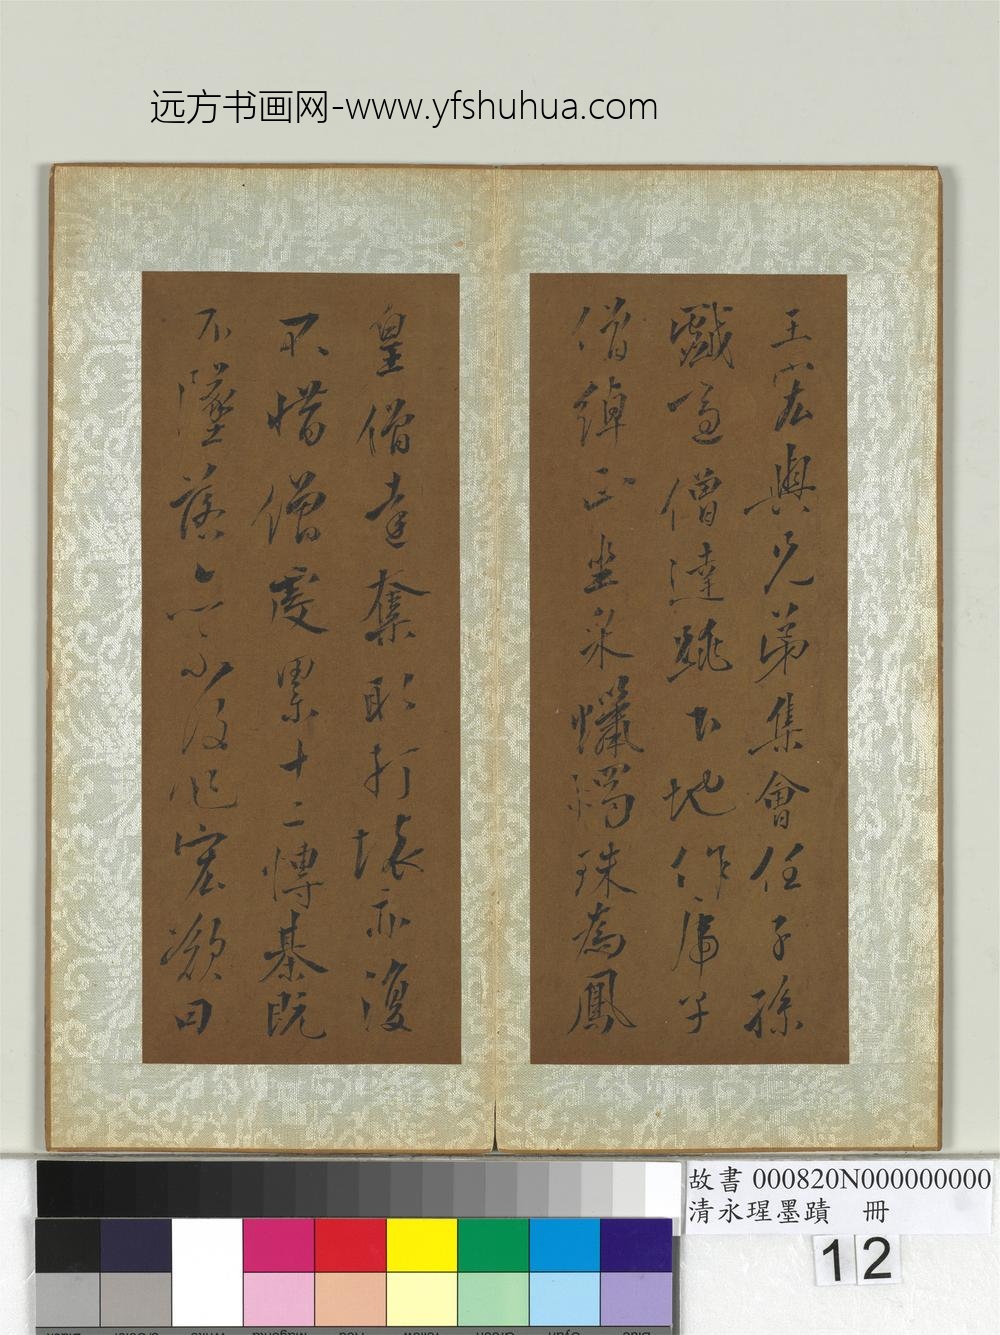 远方书画网-www.yfshuhua.com
王宏與兄弟集會任子孫
戲適僧達跳下地作虎子
僧綽正坐采蠟燭珠為鳳
皇僧達奪取打壞亦復
不惜僧虔累十二博棊既
不墜落亦不復作宏歎曰
故書 000820N000000000
清永瑆墨蹟 冊
12